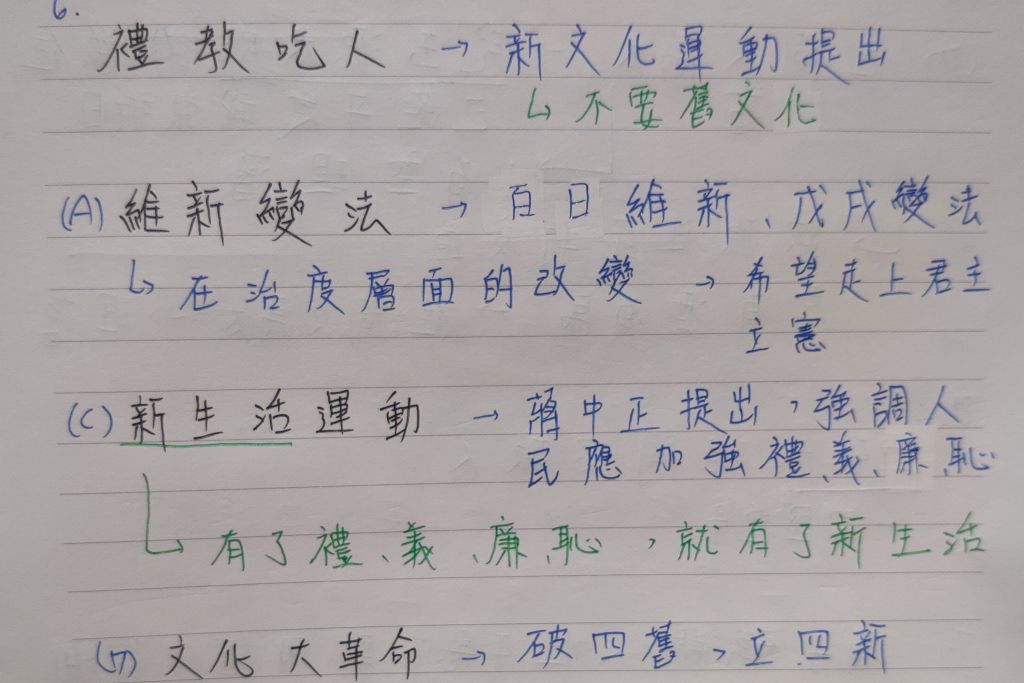 6.
禮教吃人 → 新文化運動提出
↳ 不要舊文化
(A) 維新變法 → 百日維新、戊戌變法
↳ 在治度層面的改變 → 希望走上君主
立憲
(C) 新生活運動 → 蔣中正提出，強調人
民應加強禮、義、廉、恥
↳ 有了禮、義、廉、恥，就有了新生活
(D) 文化大革命 → 破四舊，立四新